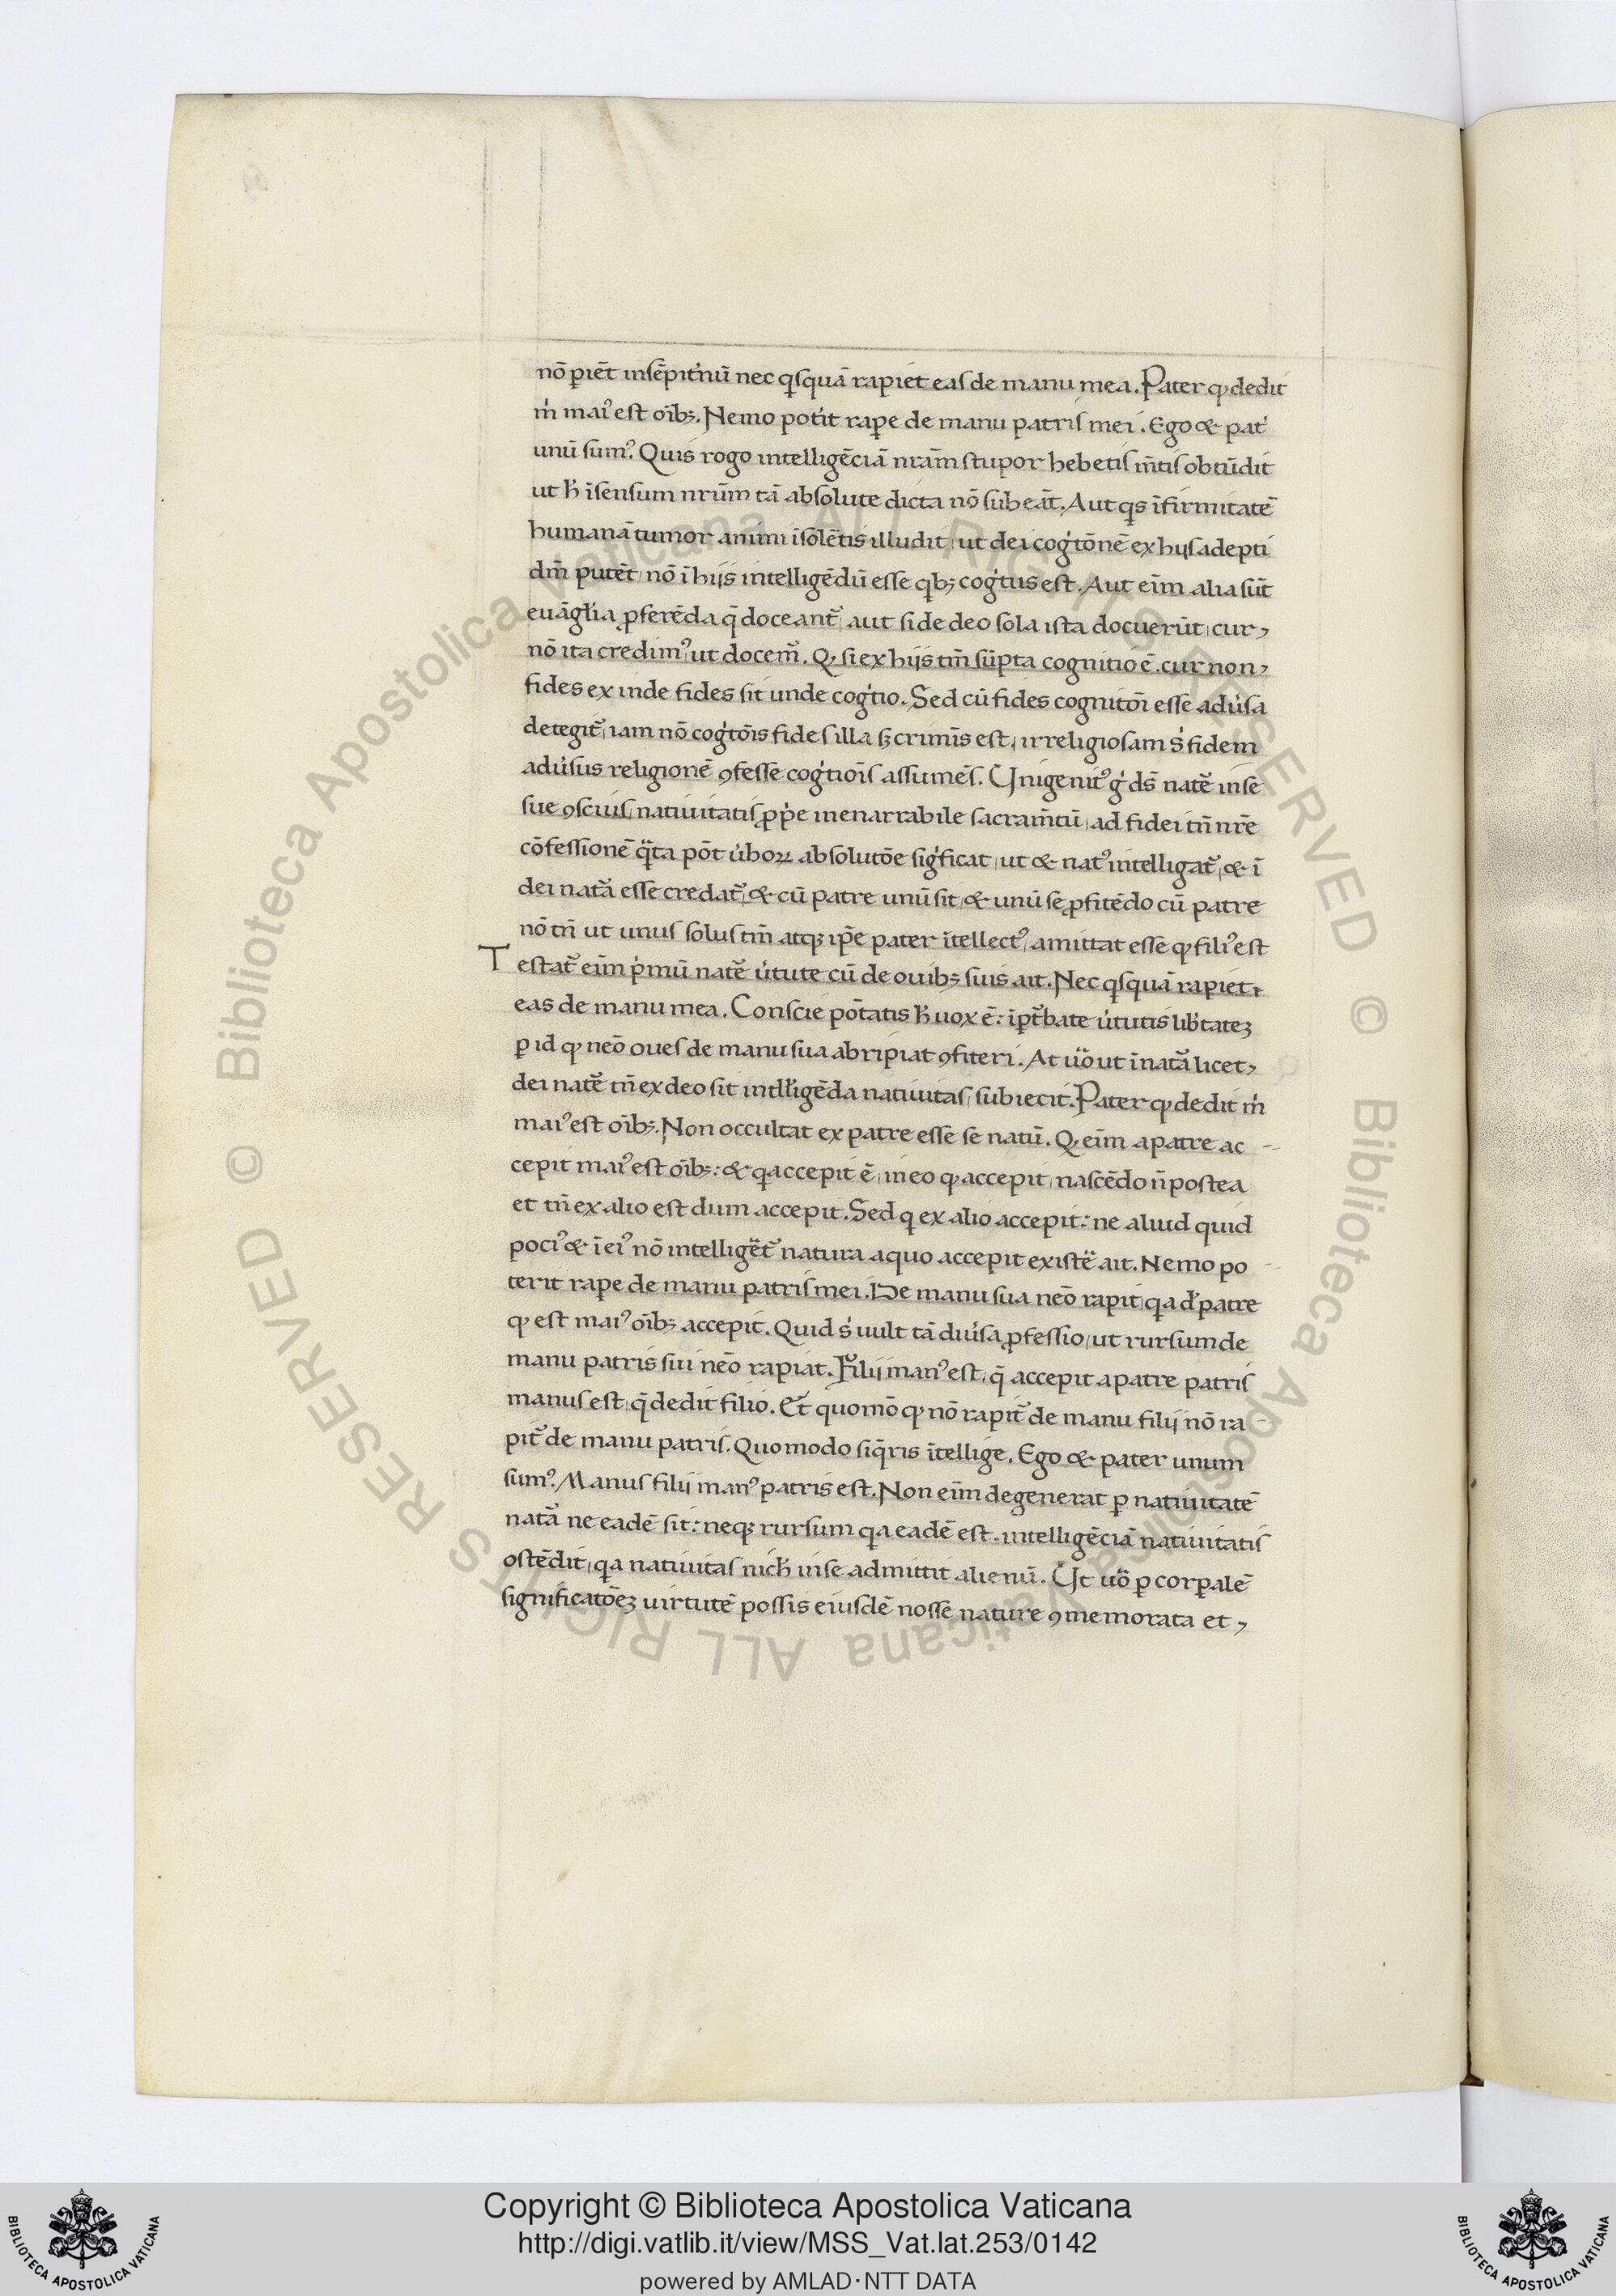 nō ꝑiēt insēpit̾nū nec qͥsquā rapiet eas de manu mea. Pater qͩ dedit
m̍ maiꝰ est oīb. Nemo pot̾it raꝑe de manu patris mei. Ego & pat̾
unū sumꝰ. Quis rogo intelligēciā nr̄am stupor hebetis m̄tis obtūdit
ut h̄ ī sensum nr̄um tā absolute dicta nō subeāt. Aut qͥs īfirmitatē
humanā tumor animi īsolētis illudit, ut dei cog̍tōnē ex hijs adepti
dm̄ putēt, nō ī hijs intelligēdū esse qͥbꝫ cog̍tus est. Aut eīm alia sūt
euāgl̍ia ꝓferēda q̄ doceant᷑, aut si de deo sola ista docuerūt, cur
nō ita credimꝰ, ut docem᷑. Qͩ si ex hijs tm̄ sūpta cognitio ē. cur non
fides ex inde fides sit unde cog̍tio. Sed cū fides cognitōi esse adu̍sa
detegit᷑, iam nō cog̍tōis fides illa sꝫ crimīs est, irreligiosam s̍ fidem
adu̍sus religionē ꝯfesse cog̍tiois assumēs. Unigenitꝰ g̍ ds̄ nat᷑e in se
sue ꝯscius, natiuitatis ꝓp̍e inenarrabile sacram̄tū, ad fidei tn̄ nr̄e
cōfessionē qͣ̄ta pōt u̍boꝝ absolutōe sig̍ficat, ut & natꝰ intelligat᷑, & ī
dei nat᷑a esse credat᷑, & cū patre unū sit, & unū se ꝓfitēdo cū patre
nō tn̄ ut unus solus tm̄ atqꝫ ip̄e pater ītellectꝰ, amittat esse qͩ filiꝰ est
Testat᷑ eīm p̍mū nat᷑e u̍tute cū de ouibꝫ suis ait. Nec qͥsquā rapiet
eas de manu mea. Conscie pōtatis h̄ uox ē: īpt᷑bate u̍tutis lib̍tatēꝫ
ꝑ id qͩ neō oues de manu sua abripiat ꝯfiteri. At uͦ ut ī nat᷑a licet
dei nat᷑e tn̄ ex deo sit intll̍igēda natiuitas, subiecit. Pater qͩ dedit m̍
maiꝰ est oīb. Non occultat ex patre esse se natū. Qͩ eīm a patre ac
cepit maiꝰ est oīb: & qͥ accepit ē, in eo qͩ accepit, nascēdo n̄ postea
et tn̄ ex alio est dum accepit. Sed qͥ ex alio accepit: ne aliud quid
pociꝰ & ī eiꝰ nō intelliget᷑ natura a quo accepit existe᷑ ait. Nemo po
terit raꝑe de manu patris mei. De manu sua neō rapit, qͥa d̍ patre
qͩ est maiꝰ oībꝫ accepit. Quid s̍ uult tā diu̍sa ꝓfessio, ut rursum de
manu patris sui neō rapiat. Filij manꝰ est, q̄ accepit a patre patris
manus est, q̄ dedit filio. Et quomō qͩ nō rapit᷑ de manu filij nō ra
pit᷑ de manu patris. Quomodo si q̄ris ītellige. Ego & pater unum
sumꝰ. Manus filij manꝰ patris est. Non eīm degenerat ꝑ natiuitatē
nat᷑a ne eadē sit: neqꝫ rursum qͥa eadē est. intelligēciā natiuitatis
ostēdit, qͥa natiuitas nich̄ in se admittit alienū. Ut uͦ ꝑ corꝑalē
significatōeꝫ uirtutē possis eiusdē nosse nature ꝯmemorata et
Copyright © Biblioteca Apostolica Vaticana
http://digi.vatlib.it/view/MSS_Vat.lat.253/0142
powered by AMLAD·NTT DATA